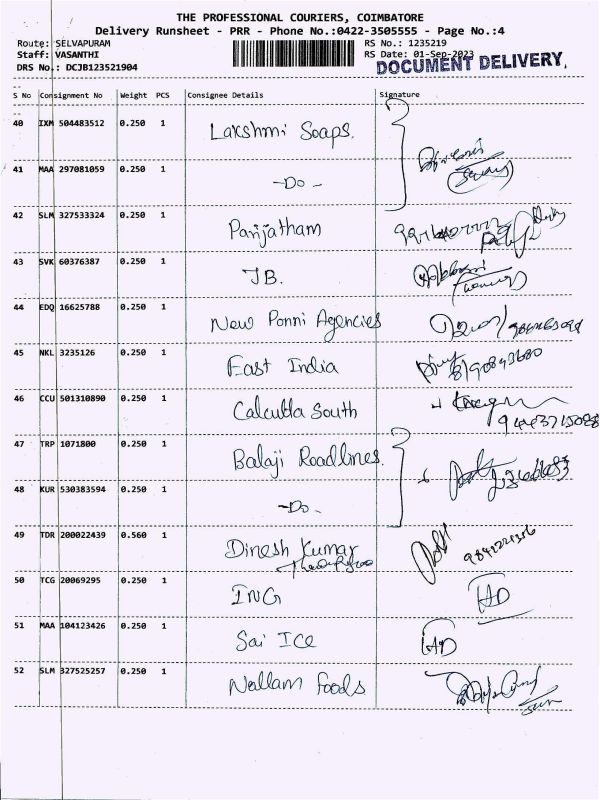 THE PROFESSIONAL COURIERS, COIMBATORE
Delivery Runsheet - PRR - Phone No.:0422-3505555 - Page No.:4
Route: SELVAPURAM RS No.: 1235219
Staff: VASANTHI RS Date: 01-Sep-2023
DRS No.: DCJB123521904 DOCUMENT DELIVERY.
S No Consignment No Weight PCS Consignee Details Signature
40 IXM 504483512 0.250 1 Lakshmi Soaps.
41 MAA 297081059 0.250 1 -Do-
42 SLM 327533324 0.250 1 Parijatham
43 SVK 60376387 0.250 1 JB.
44 EDQ 16625788 0.250 1 New Ponni Agencies
45 NKL 3235126 0.250 1 East India
46 CCU 501310890 0.250 1 Calcutta South
47 TRP 1071800 0.250 1 Balaji Roadlines.
48 KUR 530383594 0.250 1 -Do-
49 TDR 200022439 0.560 1 Dinesh Kumar
50 TCG 20069295 0.250 1 ING
51 MAA 104123426 0.250 1 Sai ICe
52 SLM 327525257 0.250 1 Nallam Foods